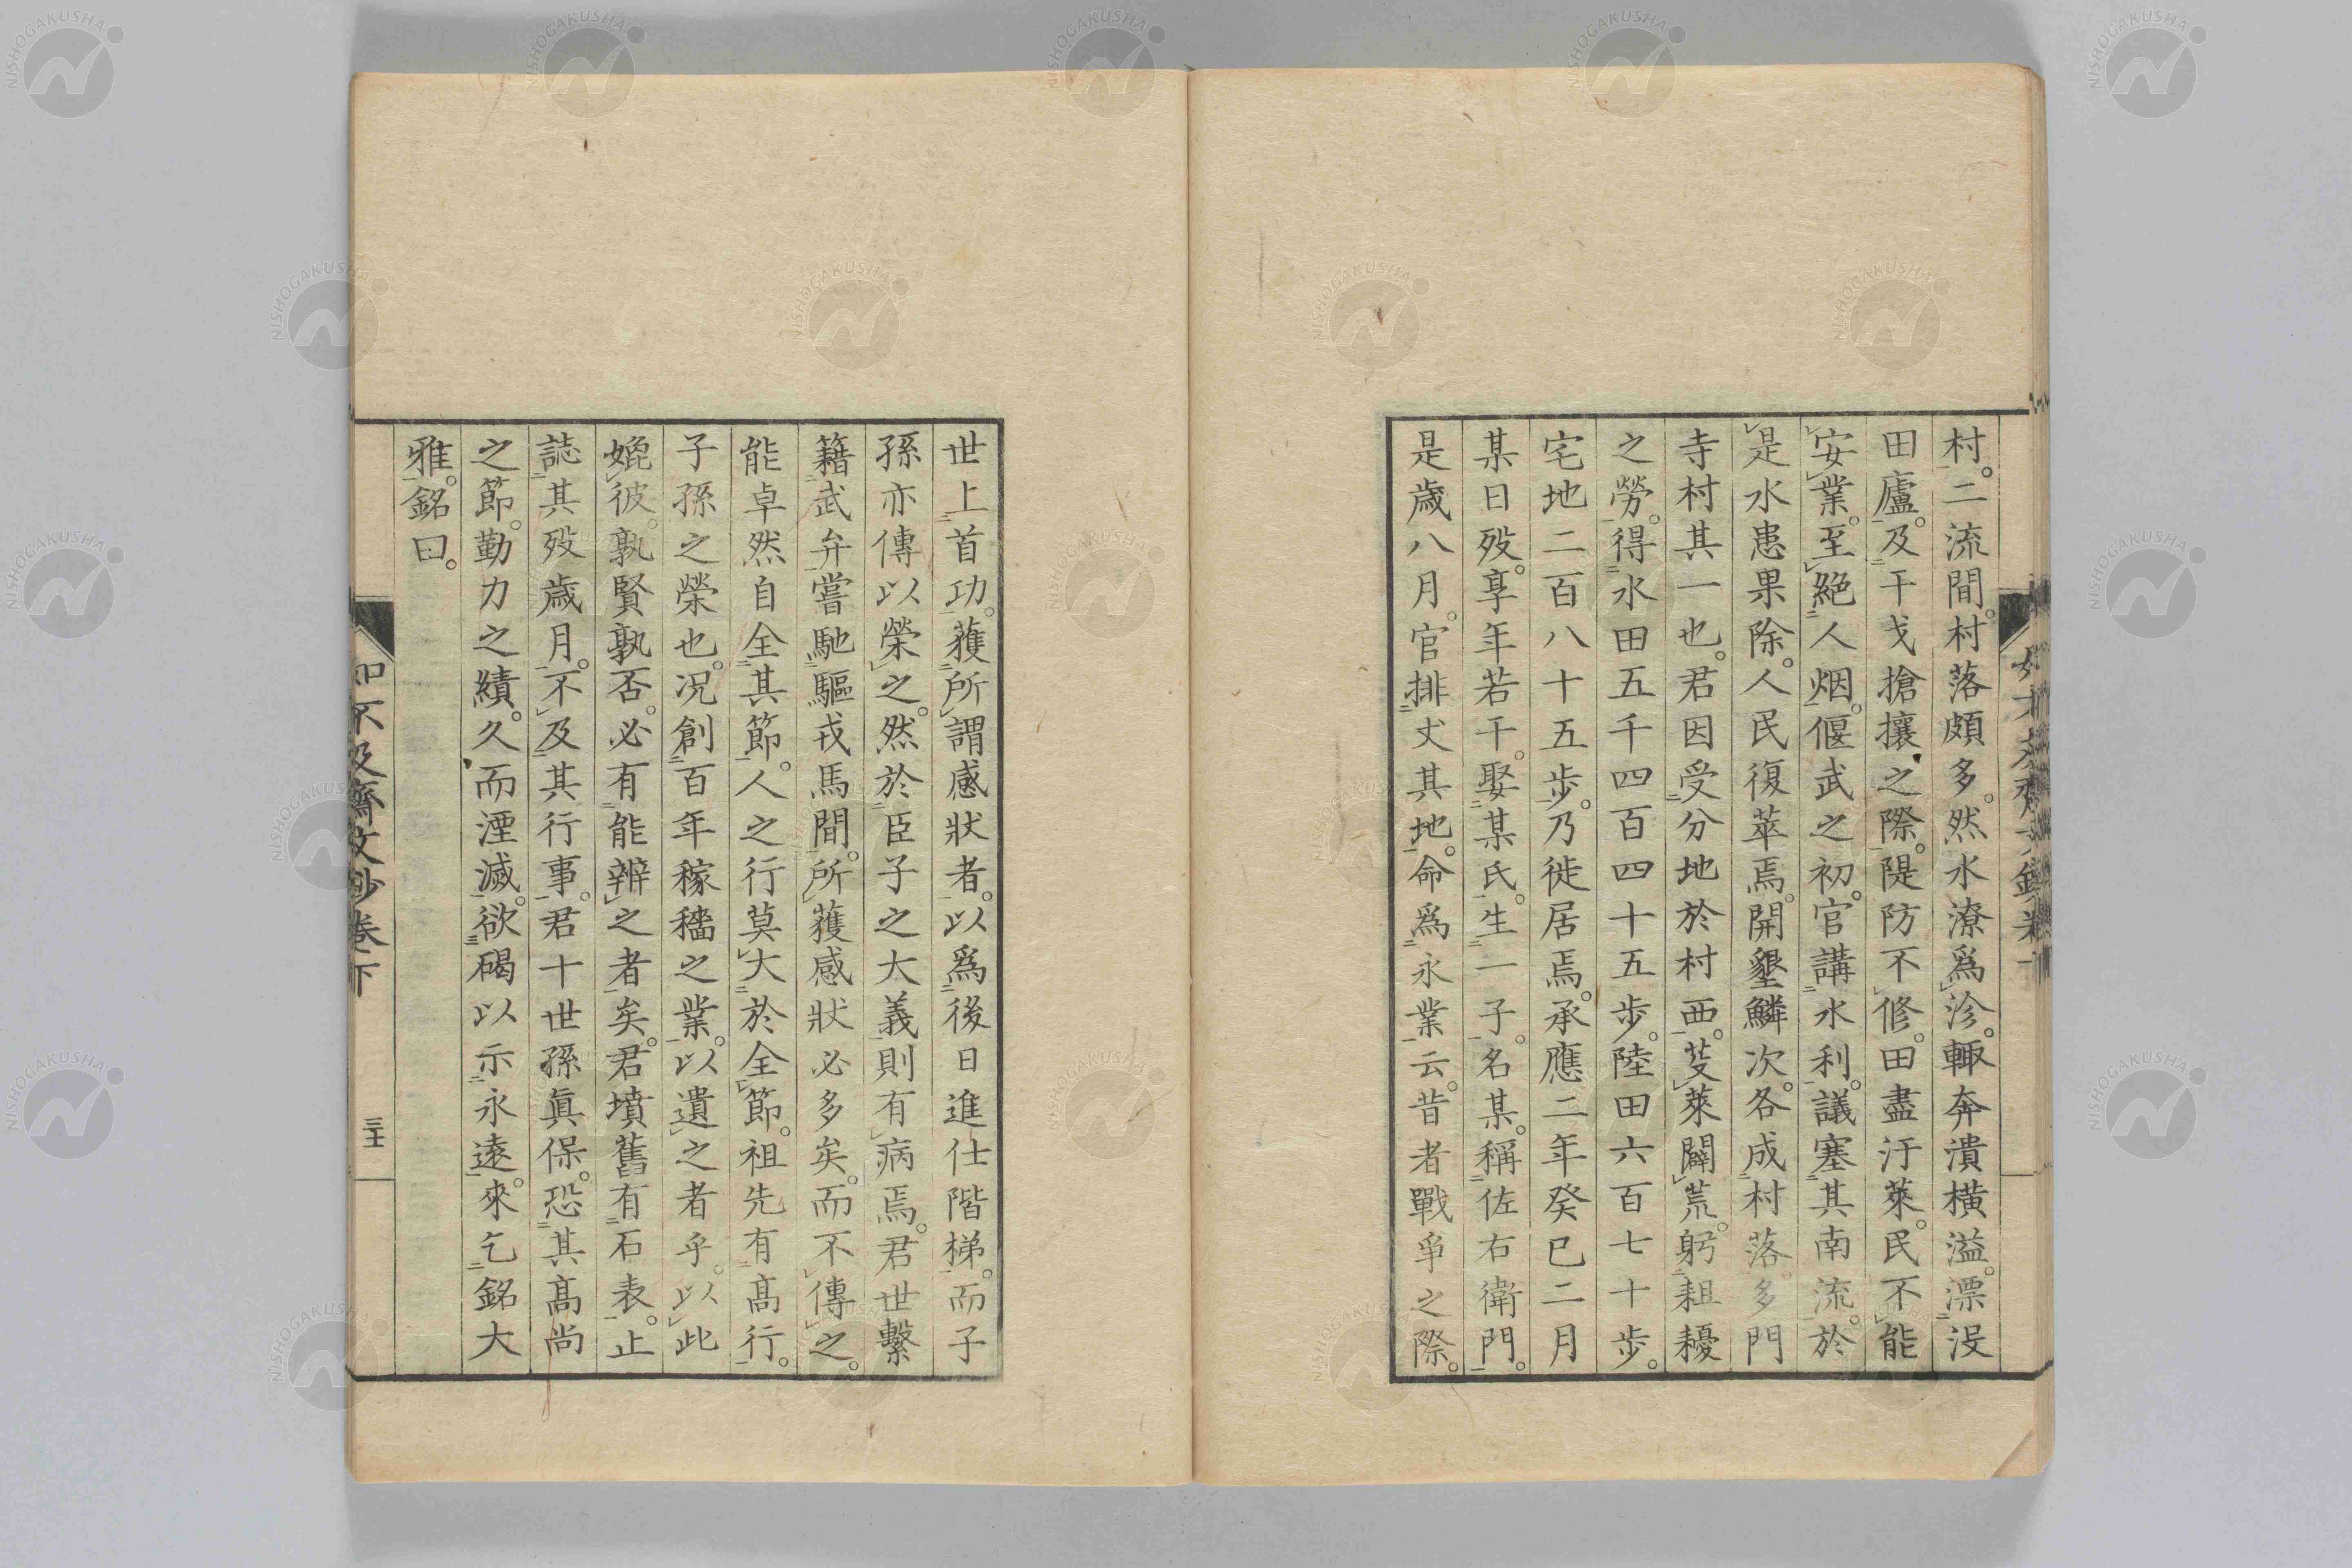 村。二流間。村落頗多。然水潦爲沴。輙奔潰橫溢。漂沒
田廬。及干戈搶攘之際。隄防不修。田盡汙萊。民不能
安業。至絕人烟。偃武之初。官講水利。議塞其南流。於
是水患果除。人民復萃焉。開墾鱗次。各成村落。多門
寺村其一也。君因受分地於村西。芟萊闢荒。躬耝耰
之勞。得水田五千四百四十五步。陸田六百七十步。
宅地二百八十五步。乃徙居焉。承應二年癸巳二月
某日歿。享年若干。娶某氏。生一子。名某。稱佐右衛門。
是歲八月。官排丈其地。命爲永業云。昔者戰爭之際。
世上首功。蒦所謂感狀者。以爲後日進仕階梯。而子
孫亦傳以榮之。然於臣子之大義則有病焉。君世繫
籍武弁。嘗馳驅戎馬間。所蒦感狀必多矣。而不傳之。
能卓然自全其節。人之行莫大於全節。祖先有高行。
子孫之榮也。況創百年稼穡之業。以遺之者乎。以此
媲彼。孰賢孰否。必有能辨之者矣。君墳舊有石表。止
誌其歿歲月。不及其行事。君十世孫眞保。恐其高尚
之節。勤力之績。久而湮滅。欲碣以示永遠。來乞銘大
雅。銘曰。
如不及齋文鈔卷下
三十七
NISHOGAKUSHA